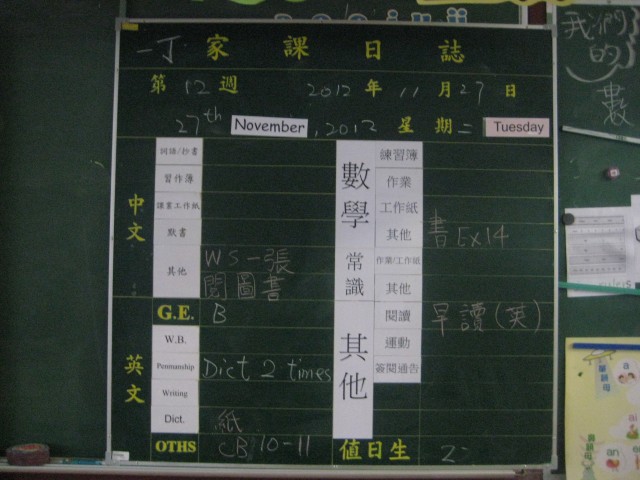 一丁 家課日誌
第 12 週 2012 年 11 月 27 日
27th November, 2012 星期二 Tuesday
中文
詞語/抄書
習作簿
課業工作紙
默書
其他 WS一張
閱圖書
G.E. B
英文
W.B.
Penmanship Dict 2 times
Writing
Dict. 紙
OTHS CB 10-11
數學
練習簿
作業
工作紙
其他 書 Ex14
常識
作業/工作紙
其他
其他
閱讀 早讀(英)
運動
簽閱通告
值日生 2
我們
的
數
韻母
a
ai
an
en